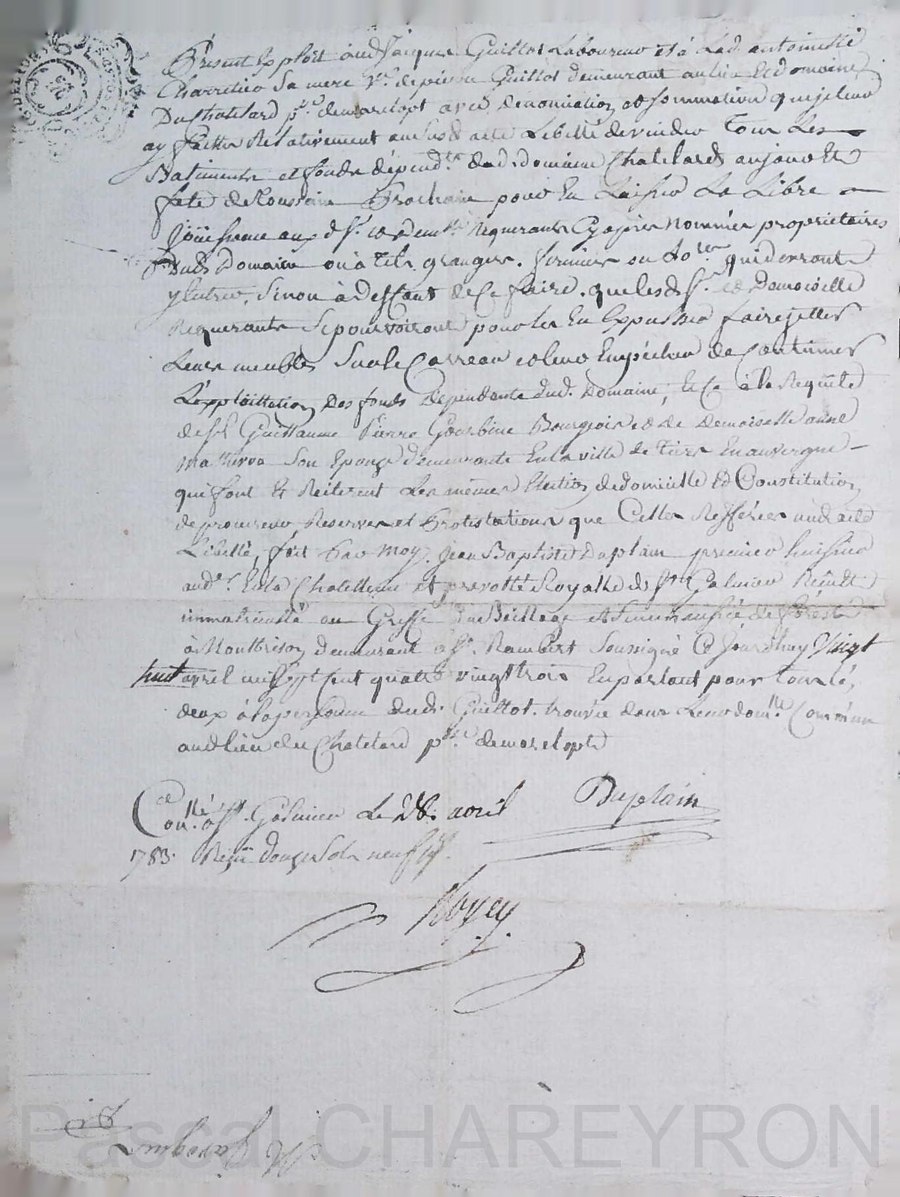 Présent exploit aud. Jacques Guillot Laboureur et à Lad. antoinette
Charretier Sa mere Ve. de pierre Guillot demeurant au lieu et domaine
Du Chatelard psse. de avec denonciation et sommation que je leur
ay faitte Relativement aud. acte Libellé de vuider Tous Les
Batiments et fonds dépendts. dud. Domaine Chatelard au jour et
fete de Toussaint Prochaine pour En Laisser La Libre
Joüissance aux d. Sr. et dem.lle Requerants Cy apres Nommés propriétaires
Dud. Domaine ou à tels grangers. fermiers ou qui devront
y Entrer, Sinon à deffaut de Ce faire, que lesd. Sr. et Demoiselle
Requerants Se pourvoiront pour les En Expulser faire jetter
Leurs meubles Sur le Carreau et leur Empécher de Continuer
L'exploittation Des fonds dépendants dud. Domaine, Et Ce à la Requête
de Sr. Guillaume Pierre Bourgeois et de Demoiselle anne
Son Epouse demeurants En la ville de tiers En auvergne
qui font Et Reiterent Les mêmes Election de domicille Et Constitution
de procureur Reserves et Protestations que Celles Refférées aud. acte
Libellé, fait Par Moy Jean Baptiste Duplain premier huissier
aud. En la Chatellenie et prevotté Royalle de St. Galmier
immatriculé au Greffe du Bailliage et Senechaussée de forest
à Montbrison demeurant à St. Rambert Soussigné Ce Jourdhuy Vingt
huit avril mil Sept Cent quatre vingt trois En parlant pour tous les
deux à la personne dud. Guillot trouvée dans Leur dom.lle Commun
aud. lieu du Chatelard psse. de
Duplain
Con.llé à St. Galmier Le 28. avril
1783. Reçu douze Sols neuf
Royey
Pascal CHAREYRON